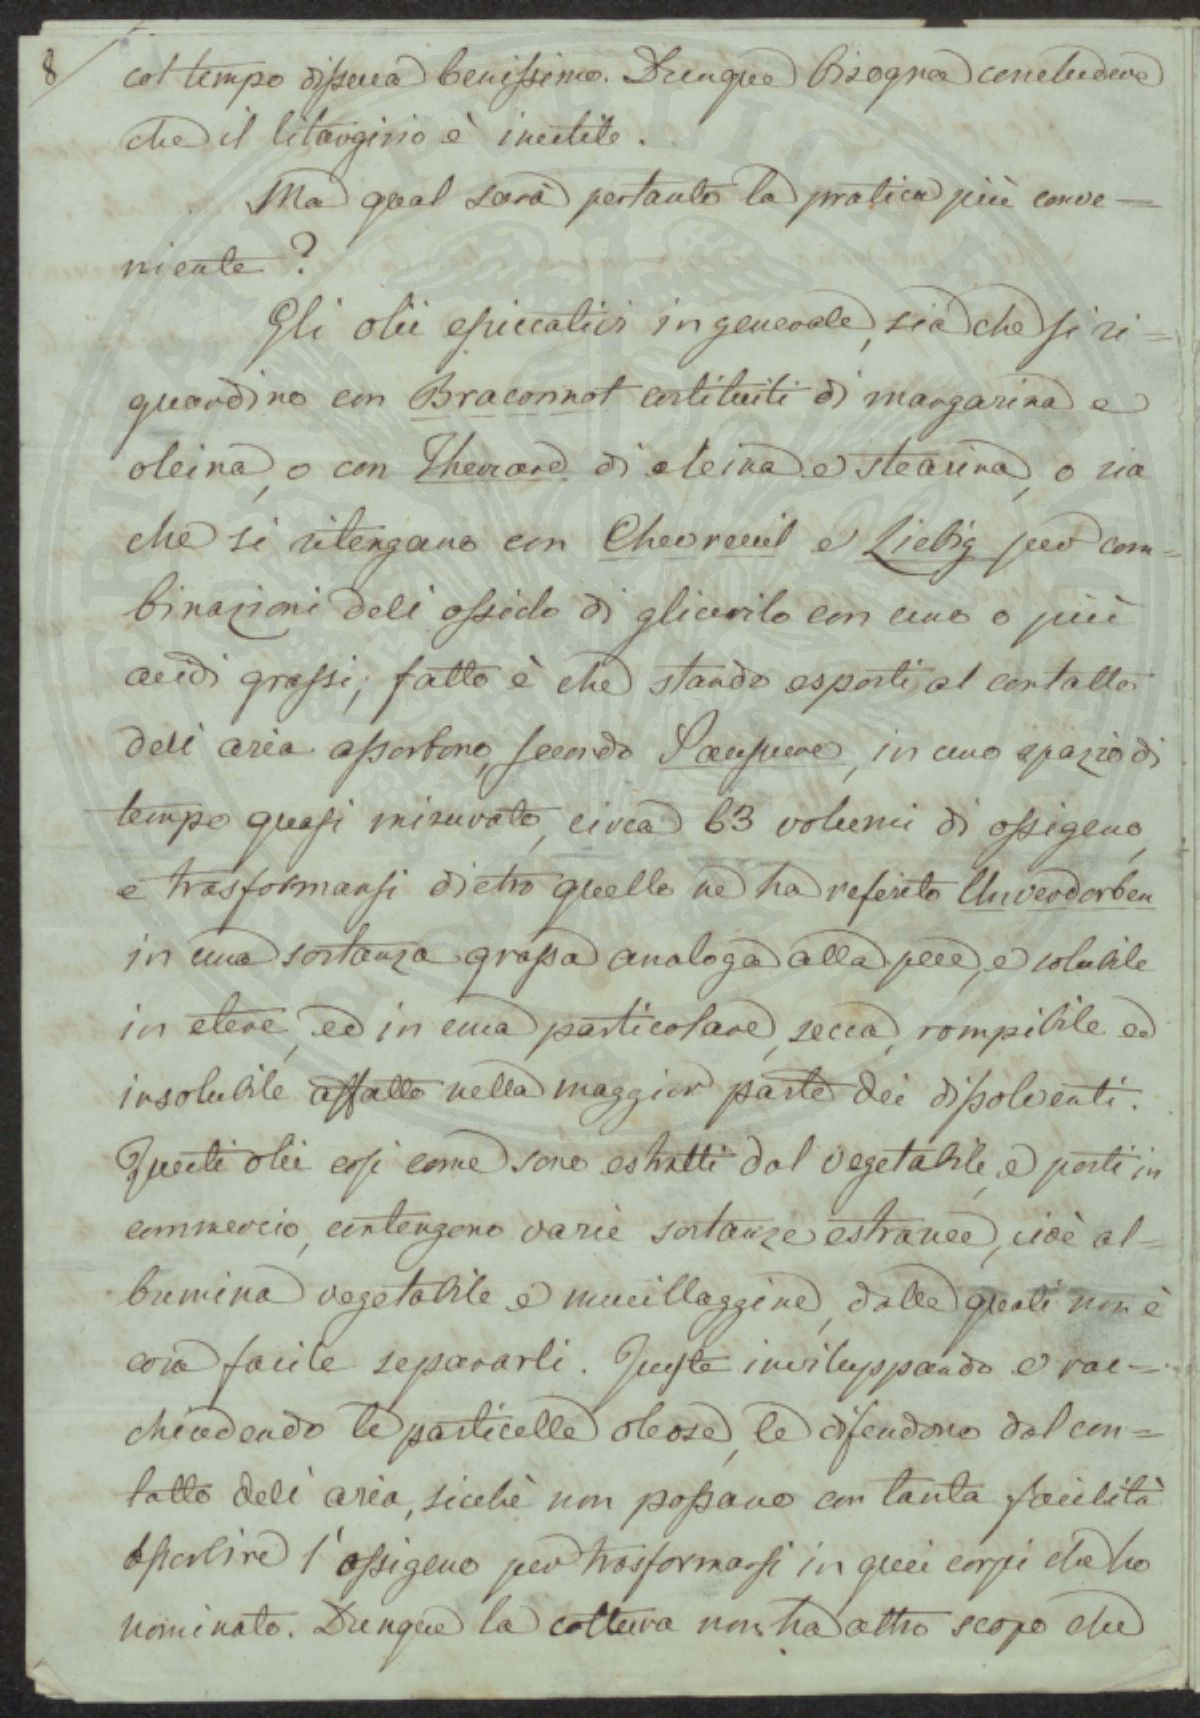 8
col tempo dissecca benissimo. Dunque bisogna concludere
che il litargirio è inutile.
Ma qual sarà pertanto la pratica più conve=
niente?
Gli olii essiccativi in generale, sia che si ri=
guardino con Braconnot costituiti di margarina e
oleina, o con Thenard di oleina e stearina, o sia
che si ritengano con Chevreuil e Liebig per com=
binazioni dell' ossido di glicerilo con uno o più
acidi grassi; fatto è che stando esposti al contatto
dell' aria assorbono, secondo Saussure, in uno spazio di
tempo quasi misurato, circa 63 volumi di ossigeno,
e trasformansi dietro quello ne ha referito Unverdorben
in una sostanza grassa analoga alla pece, e solubile
in etere, ed in una particolare, secca, rompibile ed
insolubile affatto nella maggior parte dei dissolventi.
Questi olii così come sono estratti dal vegetabile, e posti in
commercio, contengono varie sostanze estranee, cioè al=
bumina vegetabile e mucillaggine, dalle quali non è
cosa facile separarli. Queste inviluppando e rac=
chiudendo le particelle oleose, le difendono dal con=
tatto dell' aria, sicchè non possano con tanta facilità
assorbire l' ossigeno per trasformarsi in quei corpi che ho
nominato. Dunque la cottura non ha altro scopo che